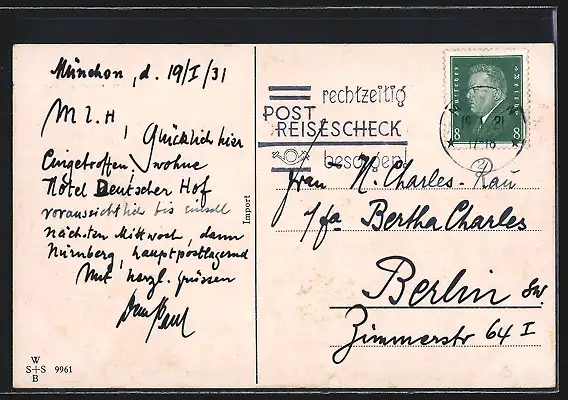 München, d. 19/I/31
M L. H,
Glücklich hier
Eingetroffen, wohne
Hotel Deutscher Hof
voraussichtlich bis
nächsten Mittwoch, dann
Nürnberg, hauptpostlagernd
Mit herzl. grüssen
Dein Paul
W
S+S 9961
B
Import
rechtzeitig
POST
REISESCHECK
besorgen!
Deutsches Reich
8 8
17-18
Frau H. Charles-Rau
p/fa Bertha Charles
Berlin SW.
Zimmerstr 64 I